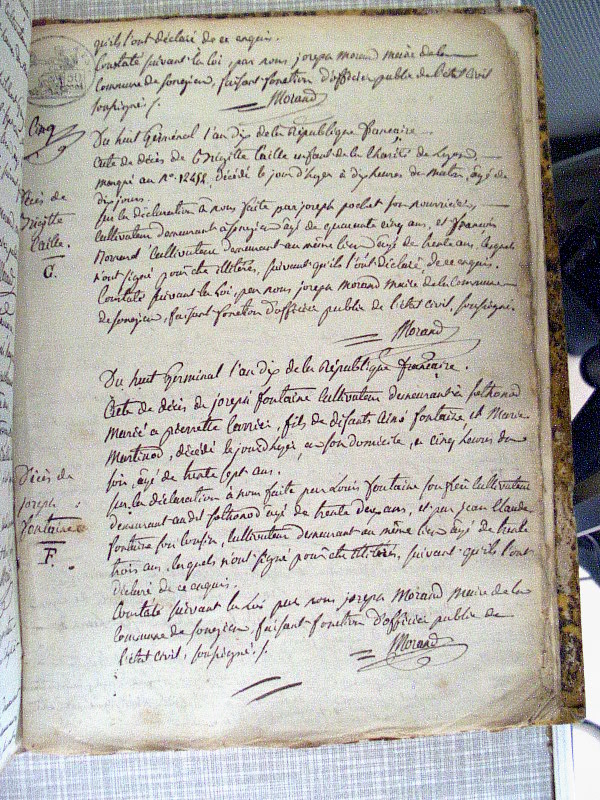 qu'ils l'ont déclaré de ce enquis.
Constaté suivant la loi, par nous joseph morand maire de la
Commune de sonzieu, faisant fonction d'officier public de l'état civil
soussigné /.
Morand
Cinq
Du huit Germinal l'an dix de la République francaise.
acte de décès de Brigitte Caille enfant de la Charité de Lyon,
marqué au n.° 12452, décédé le jour d'hyer a dix heures du matin, âgé de
dix jours.
Décès de
Brigitte
Caille.
C.
sur la déclaration à nous faite par joseph pochet son nourricier,
cultivateur demeurant a sonzieu âgé de quarante cinq ans, et francois
Morand cultivateur demeurant au même lieu âgé de trente ans, lesquels
n'ont signé pour être illitéres, suivant qu'ils l'ont déclaré, de ce enquis.
Constaté suivant la loi, par nous joseph morand maire de la commune
de sonzieu, faisant fonction d'officier public de l'état civil, soussigné.
Morand
Du huit Germinal l'an dix de la République francaise.
Acte de décès de joseph fontaine cultivateur demeurant a
Marié a pierrette Carrier, fils de défunts Aimé fontaine et Marie
Martinod, décédé le jour d'hyer, a son domicile, a cinq heures du
soir, âgé de trente sept ans.
Décès de
joseph
fontaine
F.
sur la déclaration à nous faite par Louis fontaine son frère cultivateur
demeurant audit âgé de trente deux ans, et par jean Claude
fontaine son cousin, cultivateur demeurant au même lieu âgé de trente
trois ans, lesquels n'ont signé pour être illitéres, suivant qu'ils l'ont
déclaré de ce enquis.
Constaté suivant la Loi par nous joseph Morand maire de la
Commune de sonzieu, faisant fonction d'officier public de
l'état civil, soussigné /.
Morand